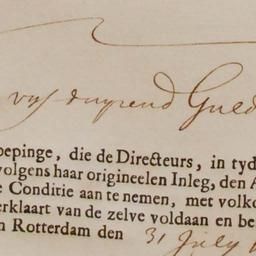 vyf duysend Guld
oepinge, die de Directeurs, in tyd
volgens haar origineelen Inleg, den A
e Conditie aan te nemen, met volko
erklaart van de zelve voldaan en be
n Rotterdam den 31 July